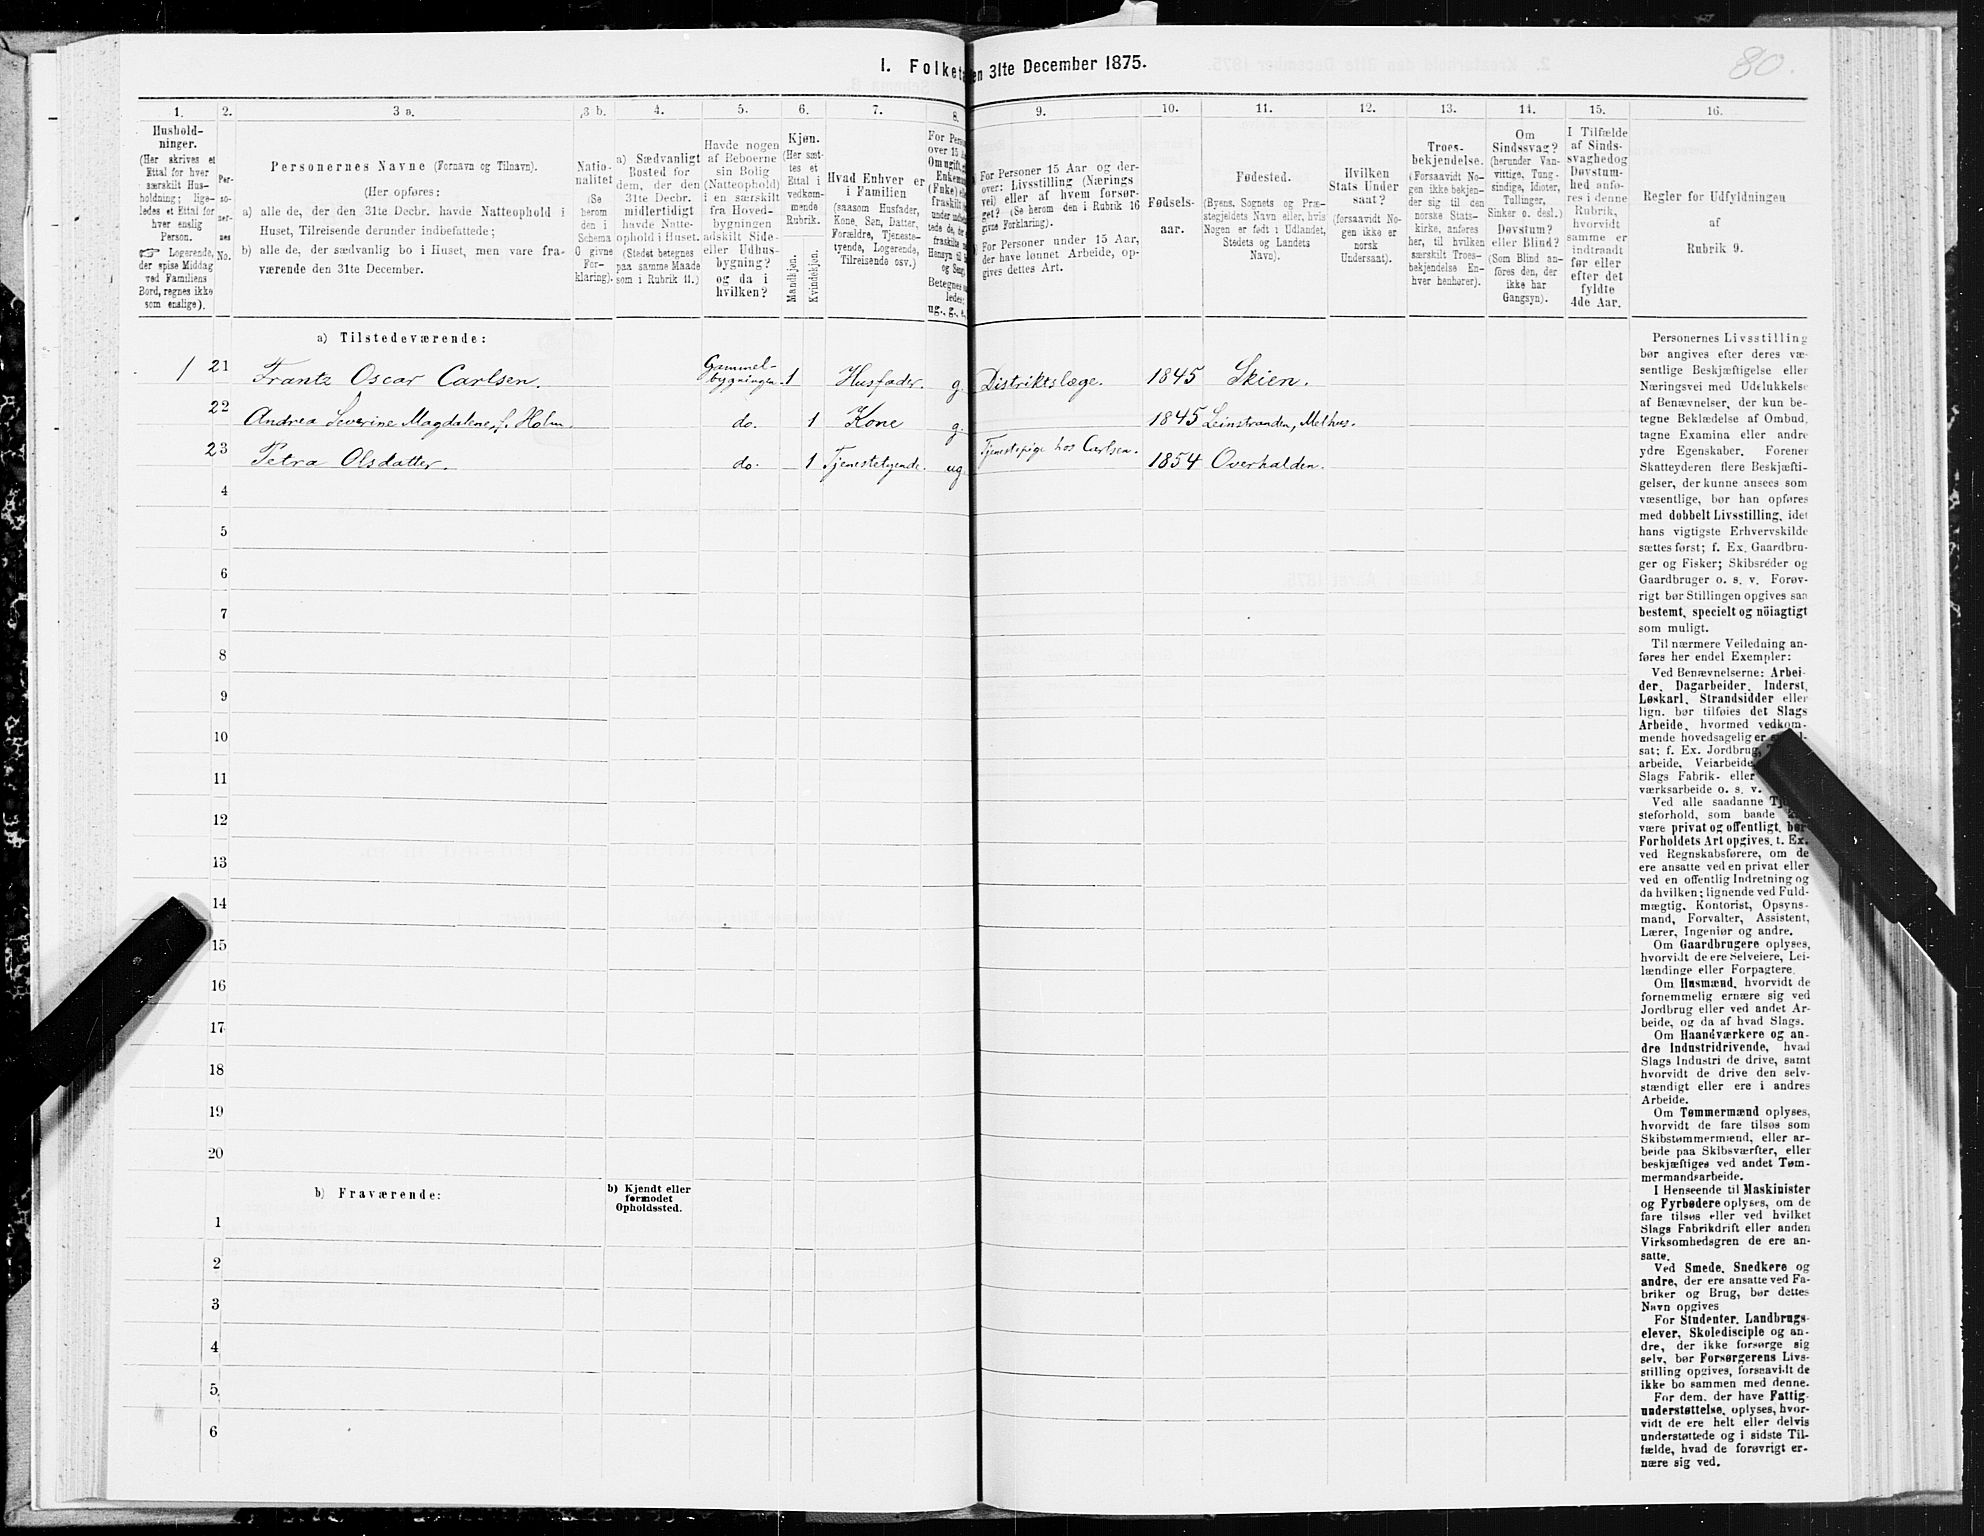 80.
I. Folketa en 31te December 1875.
1. 2. 3 a. 3 b. 4. 5. 6. 7. 8. 9. 10. 11. 12. 13. 14. 15. 16.
Hushold-
ninger.
(Her skrives et
Ettal for hver
særskilt Hus-
holdning; lige-
ledes et Ettal for
hver enslig
Person.
☞ Logerende,
der spise Middag
ved Familiens
Bord, regnes ikke
som enslige).
Per-
so-
ner-
nes
No.
Personernes Navne (Fornavn og Tilnavn).
(Her opføres:
a) alle de, der den 31te Decbr. havde Natteophold i
Huset, Tilreisende derunder indbefattede;
b) alle de, der sædvanlig bo i Huset, men vare fra-
værende den 31te December.
Natio-
nalitet
(Se
herom
den i
Schema
0 givne
For-
klaring).
a) Sædvanligt
Bosted for
dem, der den
31te Decbr.
midlertidigt
havde Natte-
ophold i Huset.
(Stedet betegnes
paa samme Maade
som i Rubrik 11.)
Havde nogen
af Beboerne
sin Bolig
(Natteophold)
i en særskilt
fra Hoved-
bygningen
adskilt Side-
eller Udhus-
bygning?
og da i
hvilken?
Kjøn.
(Her sæt-
tes et
Ettal i
vedkom-
mende
Rubrik.
Mandkjøn.
Kvindekjøn.
Hvad Enhver er
i Familien
(saasom Husfader,
Kone, Søn, Datter,
Forældre, Tjeneste-
tyende, Logerende,
Tilreisende osv.)
For Perso
over 15 A
Om ugift, g
Enkema
(Enke) el
fraskilt
under indbe
tede de, de
fraskilte
Hensyn til
og Seng.
Betegnes
ledes:
ug., g., e.,
a) For Personer 15 Aar og der-
over: Livsstilling (Nærings
vei) eller af hvem forsør-
get? (Se herom den i Rubrik 16
givne Forklaring).
b) For Personer under 15 Aar,
der have lønnet Arbeide, op-
gives dettes Art.
Fødsels-
aar.
Fødested.
(Byens, Sognets og Præ-
stegjeldets Navn eller, hvis
Nogen er født i Udlandet,
Stedets og Landets
Navn).
Hvilken
Stats Under
saat?
(forsaavidt No-
gen ikke er
norsk
Undersaat).
Troes-
bekjendelse.
(Forsaavidt No-
gen ikke bekjen-
der sig til den
norske Stats-
kirke, anføres
her, til hvilken
særskilt Troes-
bekjendelse En-
hver henhører).
Om
Sindssvag?
(herunder Van-
vittige, Tung-
sindige, Idioter,
Tullinger,
Sinker o. desl.)
Døvstum?
eller Blind?
(Som Blind an-
føres den, der
ikke har
Gangsyn).
I Tilfælde
af Sinds-
svaghedog
Døvstum-
hed anfø-
res i denne
Rubrik,
hvorvidt
samme er
indtraadt
før eller
efter det
fyldte
4de Aar.
Regler for Udfyldningen
af
Rubrik 9.
a) Tilstedeværende:
1 21 Frantz Oscar Carlsen. Gammel-
bygningen. 1 Husfader. g. Distriktslæge. 1845 Skien.
22 Andrea Severine Magdalene, f. Holm. do. 1 Kone g. 1845 Leinstranden, Melhus.
23 Petra Olsdatter. do. 1 Tjenestetyende. ug. Tjenestepige hos Carlsen. 1854 Overhalden.
4
5
6
7
8
9
10
11
12
13
14
15
16
17
18
19
20
b) Fraværende:
b) Kjendt eller
formodet
Opholdssted.
1
2
3
4
5
6
Personernes Livsstilling
bør angives efter deres væ-
sentlige Beskjæftigelse eller
Næringsvei med Udelukkelse
af Benævnelser, der kun be-
tegne Beklædelse af Ombud,
tagne Examina eller andre
ydre Egenskaber. Forener
Skatteyderen flere Beskjæfti-
gelser, der kunne ansees som
væsentlige, bør han opføres
med dobbelt Livsstilling, idet
hans vigtigste Erhvervskilde
sættes først; f. Ex. Gaardbru-
ger og Fisker; Skibsreder og
Gaardbruger o. s. v. Forøv-
rigt bør Stillingen opgives saa
bestemt, specielt og nöiagtigt
som muligt.
Til nærmere Veiledning an-
føres her endel Exempler:
Ved Benævnelserne: Arbei-
der, Dagarbeider, Inderst,
Løskarl, Strandsidder eller
lign. bør tilføies det Slags
Arbeide, hvormed vedkom-
mende hovedsagelig er
sat; f. Ex. Jordbrug,
arbeide, Veiarbeide,
Slags Fabrik- eller
værksarbeide o. s. v.
Ved alle saadanne Tje
steforhold, som baade
være privat og offentligt, bør
Forholdets Art opgives, t. Ex.
ved Regnskabsførere, om de
ere ansatte ved en privat eller
ved en offentlig Indretning og
da hvilken; lignende ved Fuld-
mægtig, Kontorist, Opsyns-
mand, Forvalter, Assistent,
Lærer, Ingeniør og andre.
Om Gaardbrugere oplyses,
hvorvidt de ere Selveiere, Lei-
lændinge eller Forpagtere.
Om Husmænd, hvorvidt de
fornemmelig ernære sig ved
Jordbrug eller ved andet Ar-
beide, og da af hvad Slags.
Om Haandværkere og an-
dre Industridrivende, hvad
Slags Industri de drive, samt
hvorvidt de drive den selv-
stændigt eller ere i andres
Arbeide.
Om Tømmermænd oplyses,
hvorvidt de fare tilsøs som
Skibstømmermænd, eller ar-
beide paa Skibsværfter, eller
beskjæftiges ved andet Tøm-
mermandsarbeide.
I Henseende til Maskinister
og Fyrbødere oplyses, om de
fare tilsøs eller ved hvilket
Slags Fabrikdrift eller anden
Virksomhedsgren de ere an-
satte.
Ved Smede, Snedkere og
andre, der ere ansatte ved Fa-
briker og Brug, bør dettes
Navn opgives
For Studenter, Landbrugs-
elever, Skoledisciple og an-
dre, der ikke forsørge sig
selv, bør Forsørgerens Livs-
stilling opgives, forsaavidt de
ikke bo sammen med denne.
For dem, der have Fattig-
understøttelse, oplyses, hvor-
vidt de ere helt eller delvis
understøttede og i sidste Til-
fælde, hvad de forøvrigt er-
nære sig ved.